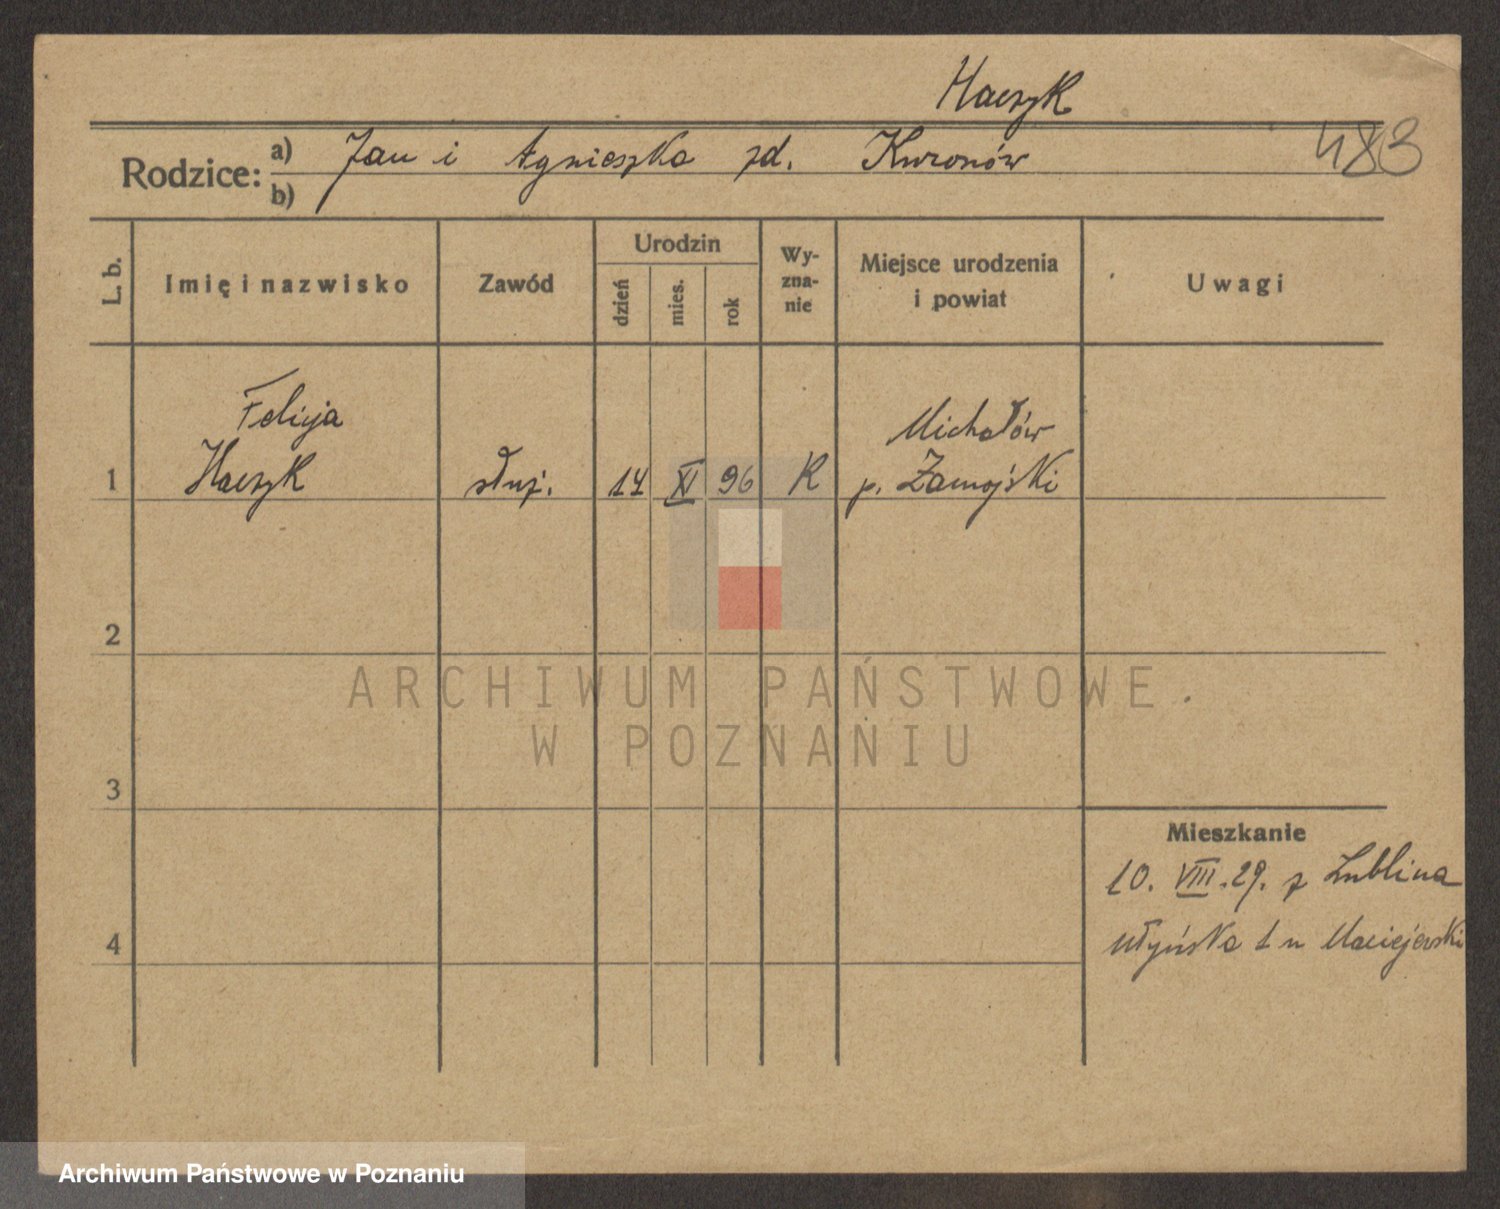 Haczyk
483
Rodzice: a) Jan i Agnieszka zd. Kuronów
b)
L. b.
Imię i nazwisko
Zawód
Urodzin
dzień
mies.
rok
Wy-
zna-
nie
Miejsce urodzenia
i powiat
Uwagi
Felicja
Haczyk
1
służ.
14
XI
96
R
Michałów
p. Zamojski
2
3
4
Mieszkanie
10. VIII. 29. z Lublina
Młyńska 1 u Maciejewski
ARCHIWUM PAŃSTWOWE
W POZNANIU
Archiwum Państwowe w Poznaniu